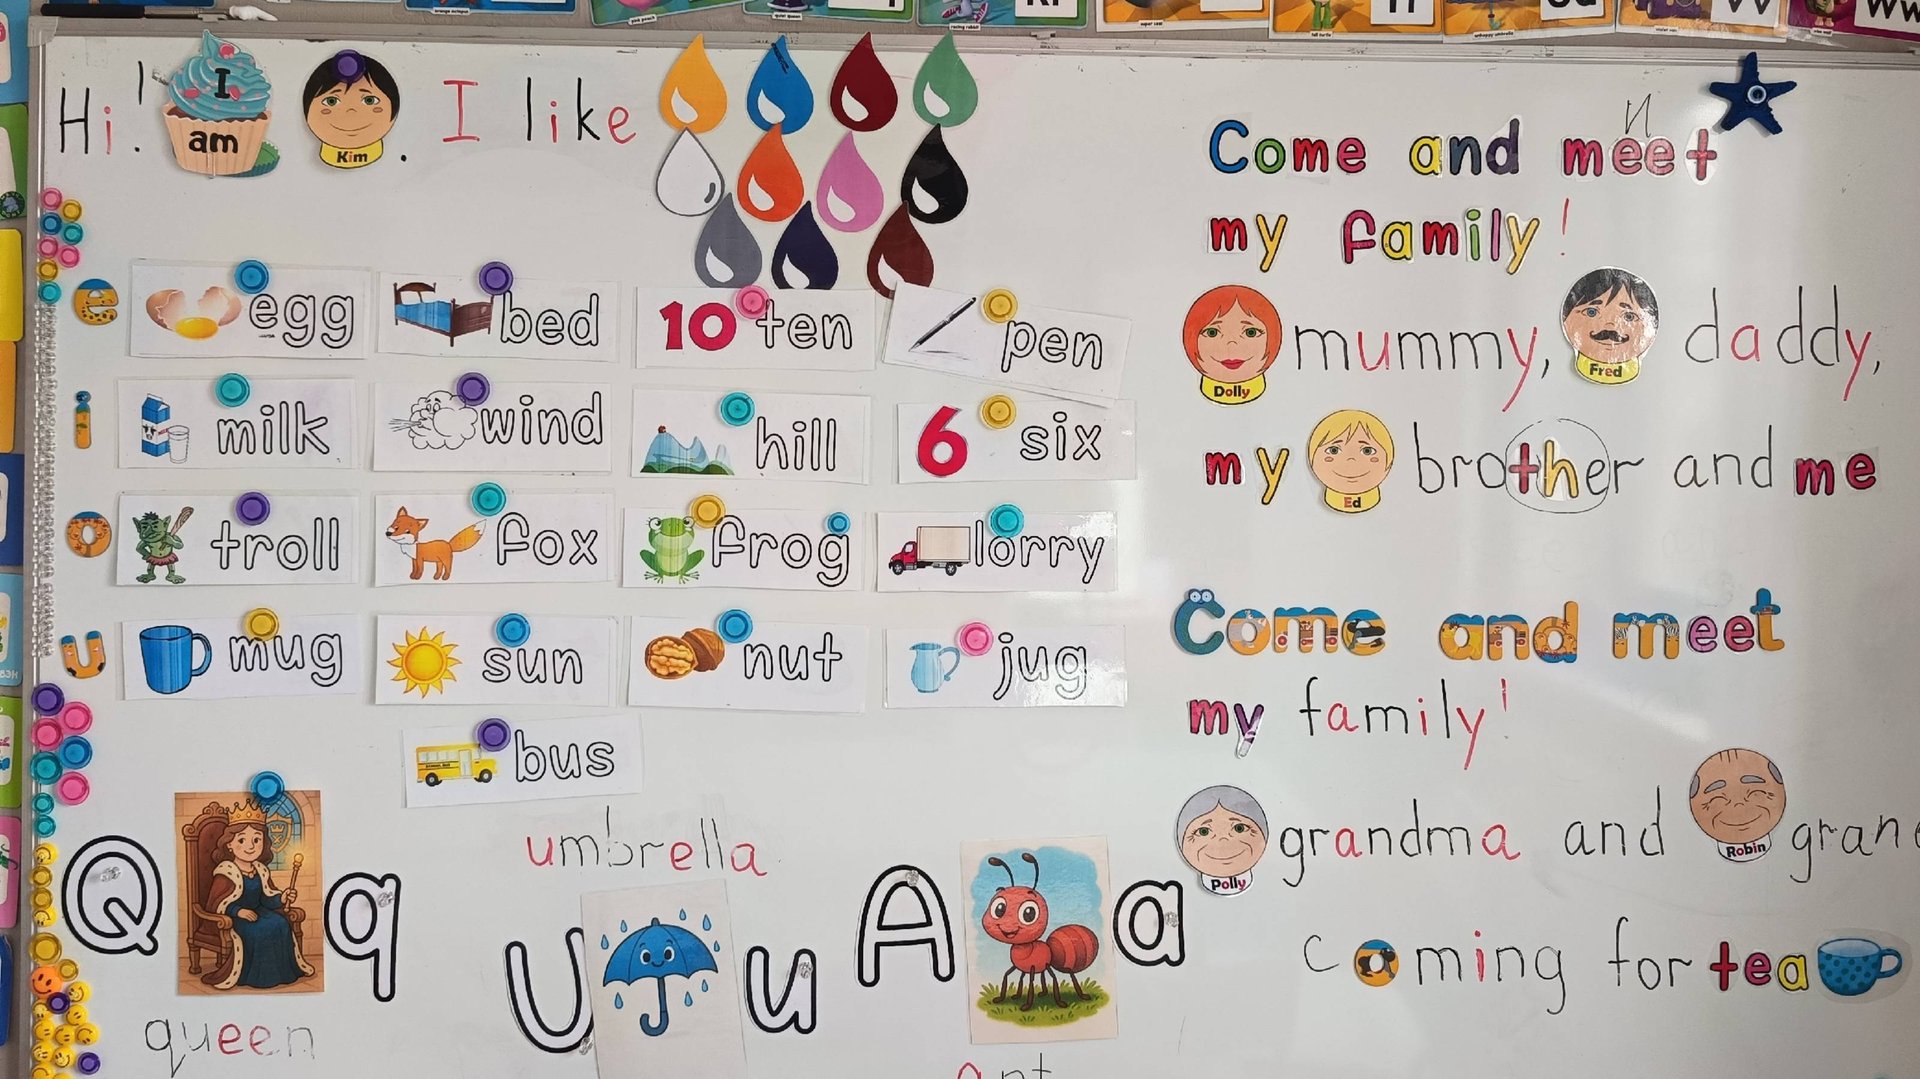 Hi! I am Kim. I like
Come and meet
и
my family!
Dolly mummy, Fred daddy,
my Ed brother and me
e egg bed 10 ten pen
i milk wind hill 6 six
o troll fox frog lorry
u mug sun nut jug
bus
Come and meet
my family!
Polly grandma and Robin gran
coming for tea
Q q
queen
umbrella
U u
A a
ant